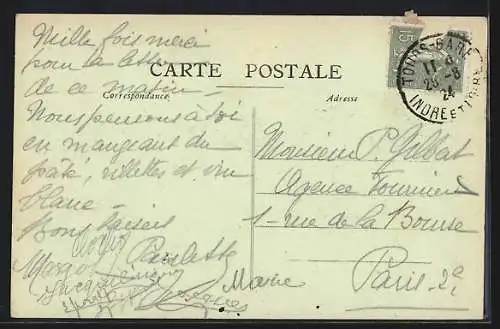 CARTE POSTALE
Correspondance
Adresse
15
TOURS-GARE
25-8
24
INDRE ET LOIRE
Mille fois merci
pour la lettre
de ce matin -
Nous pensons à toi
en mangeant du
pâté, rillettes et vin
blanc -
Bons baisers
Paulette
Margot
Jacqueline
Jacques
Marie
Monsieur P. Gilbert
Agence Fournier
1 - rue de la Bourse
Paris - 2e